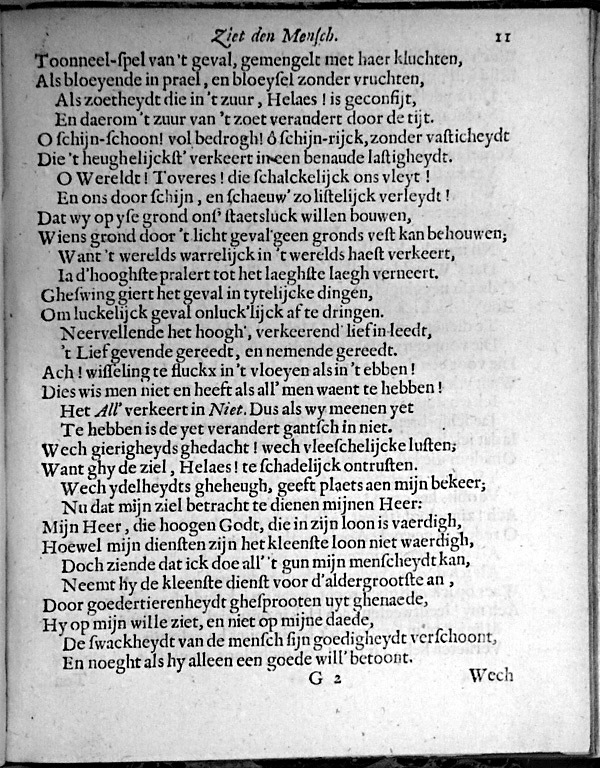 Ziet den Mensch. 11
Toonneel-spel van't geval, gemengelt met haer kluchten,
Als bloeyende in prael, en bloeysel zonder vruchten,
Als zoetheydt die in 't zuur, Helaes! is geconfijt,
En daerom 't zuur van 't zoet verandert door de tijt.
O schijn-schoon! vol bedrogh! ô schijn-rijck, zonder vasticheydt
Die 't heughelijckst' verkeert in een benaude lastigheydt.
O Wereldt! Toveres! die schalckelijck ons vleyt!
En ons door schijn, en schaeuw' zo listelijck verleydt!
Dat wy op yse grond ons' staetsluck willen bouwen,
Wiens grond door 't licht geval geen gronds vest kan behouwen;
Want 't werelds warrelijck in 't werelds haest verkeert,
Ia d'hooghste pralert tot het laeghste laegh verneert.
Gheswing giert het geval in tytelijcke dingen,
Om luckelijck geval onluck'lijck af te dringen.
Neervellende het hoogh', verkeerend' lief in leedt,
't Lief gevende gereedt, en nemende gereedt.
Ach! wisseling te fluckx in't vloeyen als in't ebben!
Dies wis men niet en heeft als all' men waent te hebben!
Het All' verkeert in Niet. Dus als wy meenen yet
Te hebben is de yet verandert gantsch in niet.
Wech gierigheyds ghedacht! wech vleeschelijcke lusten;
Want ghy de ziel, Helaes! te schadelijck ontrusten.
Wech ydelheydts gheheugh, geeft plaets aen mijn bekeer;
Nu dat mijn ziel betracht te dienen mijnen Heer:
Mijn Heer, die hoogen Godt, die in zijn loon is vaerdigh,
Hoewel mijn diensten zijn het kleenste loon niet waerdigh,
Doch ziende dat ick doe all' 't gun mijn menscheydt kan,
Neemt hy de kleenste dienst voor d'aldergrootste an,
Door goedertierenheydt ghesprooten uyt ghenaede,
Hy op mijn wille ziet, en niet op mijne daede,
De swackheydt van de mensch sijn goedigheydt verschoont,
En noeght als hy alleen een goede will' betoont.
G 2 Wech